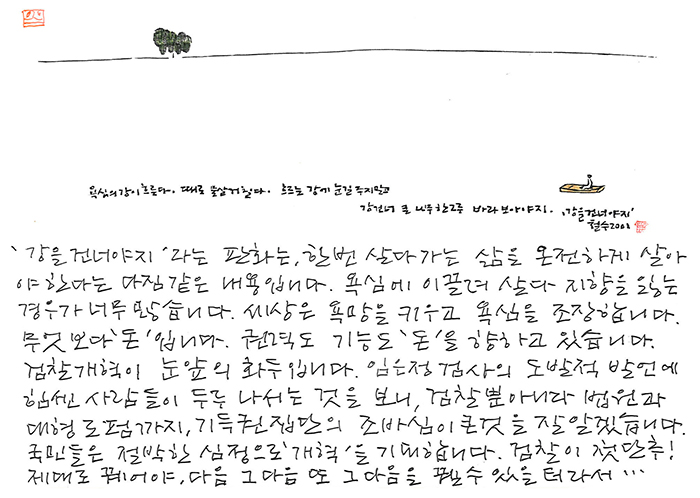 욕심의 강이 흐른다. 때로 물살 거칠다. 흐르는 강에 눈길 주지말고
강건너 큰 나무 한그루 바라보아야지. '강을건너야지'
철수2001
'강을건너야지'라는 판화는, 한번 살다가는 삶을 온전하게 살아
야한다는 다짐같은 내용입니다. 욕심에 이끌려 살다 지향을 잃는
경우가 너무 많습니다. 세상은 욕망을 키우고 욕심을 조장합니다.
무엇보다 '돈'입니다. 권력도 기능도 '돈'을 향하고 있습니다.
검찰개혁이 눈앞의 화두입니다. 임은정검사의 도발적 발언에
힘센 사람들이 두루 나서는 것을 보니, 검찰뿐아니라 법원과
대형로펌까지, 기득권집단의 조바심이 큰것을 잘 알겠습니다.
국민들은 절박한 심정으로 '개혁'을 기대합니다. 검찰이 첫단추!
제대로 꿰어야, 다음 그다음 또 그다음을 꿸수 있을 터라서 …